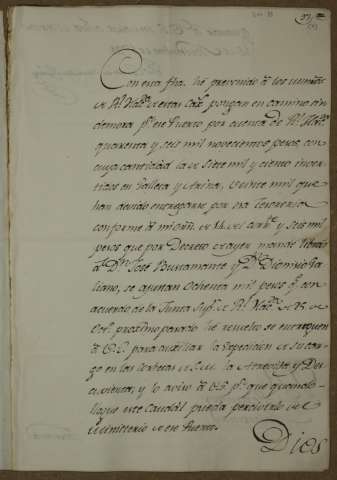 Con esta fha. he prevenido á los minros.
de Rl. Hazda. de estas Caxs. pongan en camino sin
demora pa. ese Puerto por cuenta de Rl. Hazda.
quarenta y seis mil novecientos pesos con
cuya cantidad la de siete mil y ciento inver-
tidos en Galleta y Arina, veinte mil que
han devido entregarse por esa Tesoreria
conforme á mi orn. de 14 del corrte. y seis mil
pesos que por Decreto de ayer mandé librar
á Dn. José Bustamante y Dn. Dionisio Ga-
liano, se ajustan ochenta mil pesos qe. con
acuerdo de la Junta Supr. de Rl. Hazda. de
Octe. proximo pasado he resuelto se entreguen
á V.S. para auxiliar la expedicion de su car-
go en las Corbetas de S.M. la Atrevida y Des-
cuvierta, y lo aviso á V.S. pa. que quando
llegue este Caudal pueda percivirlo del
Ministerio de ese Puerto.
Dios